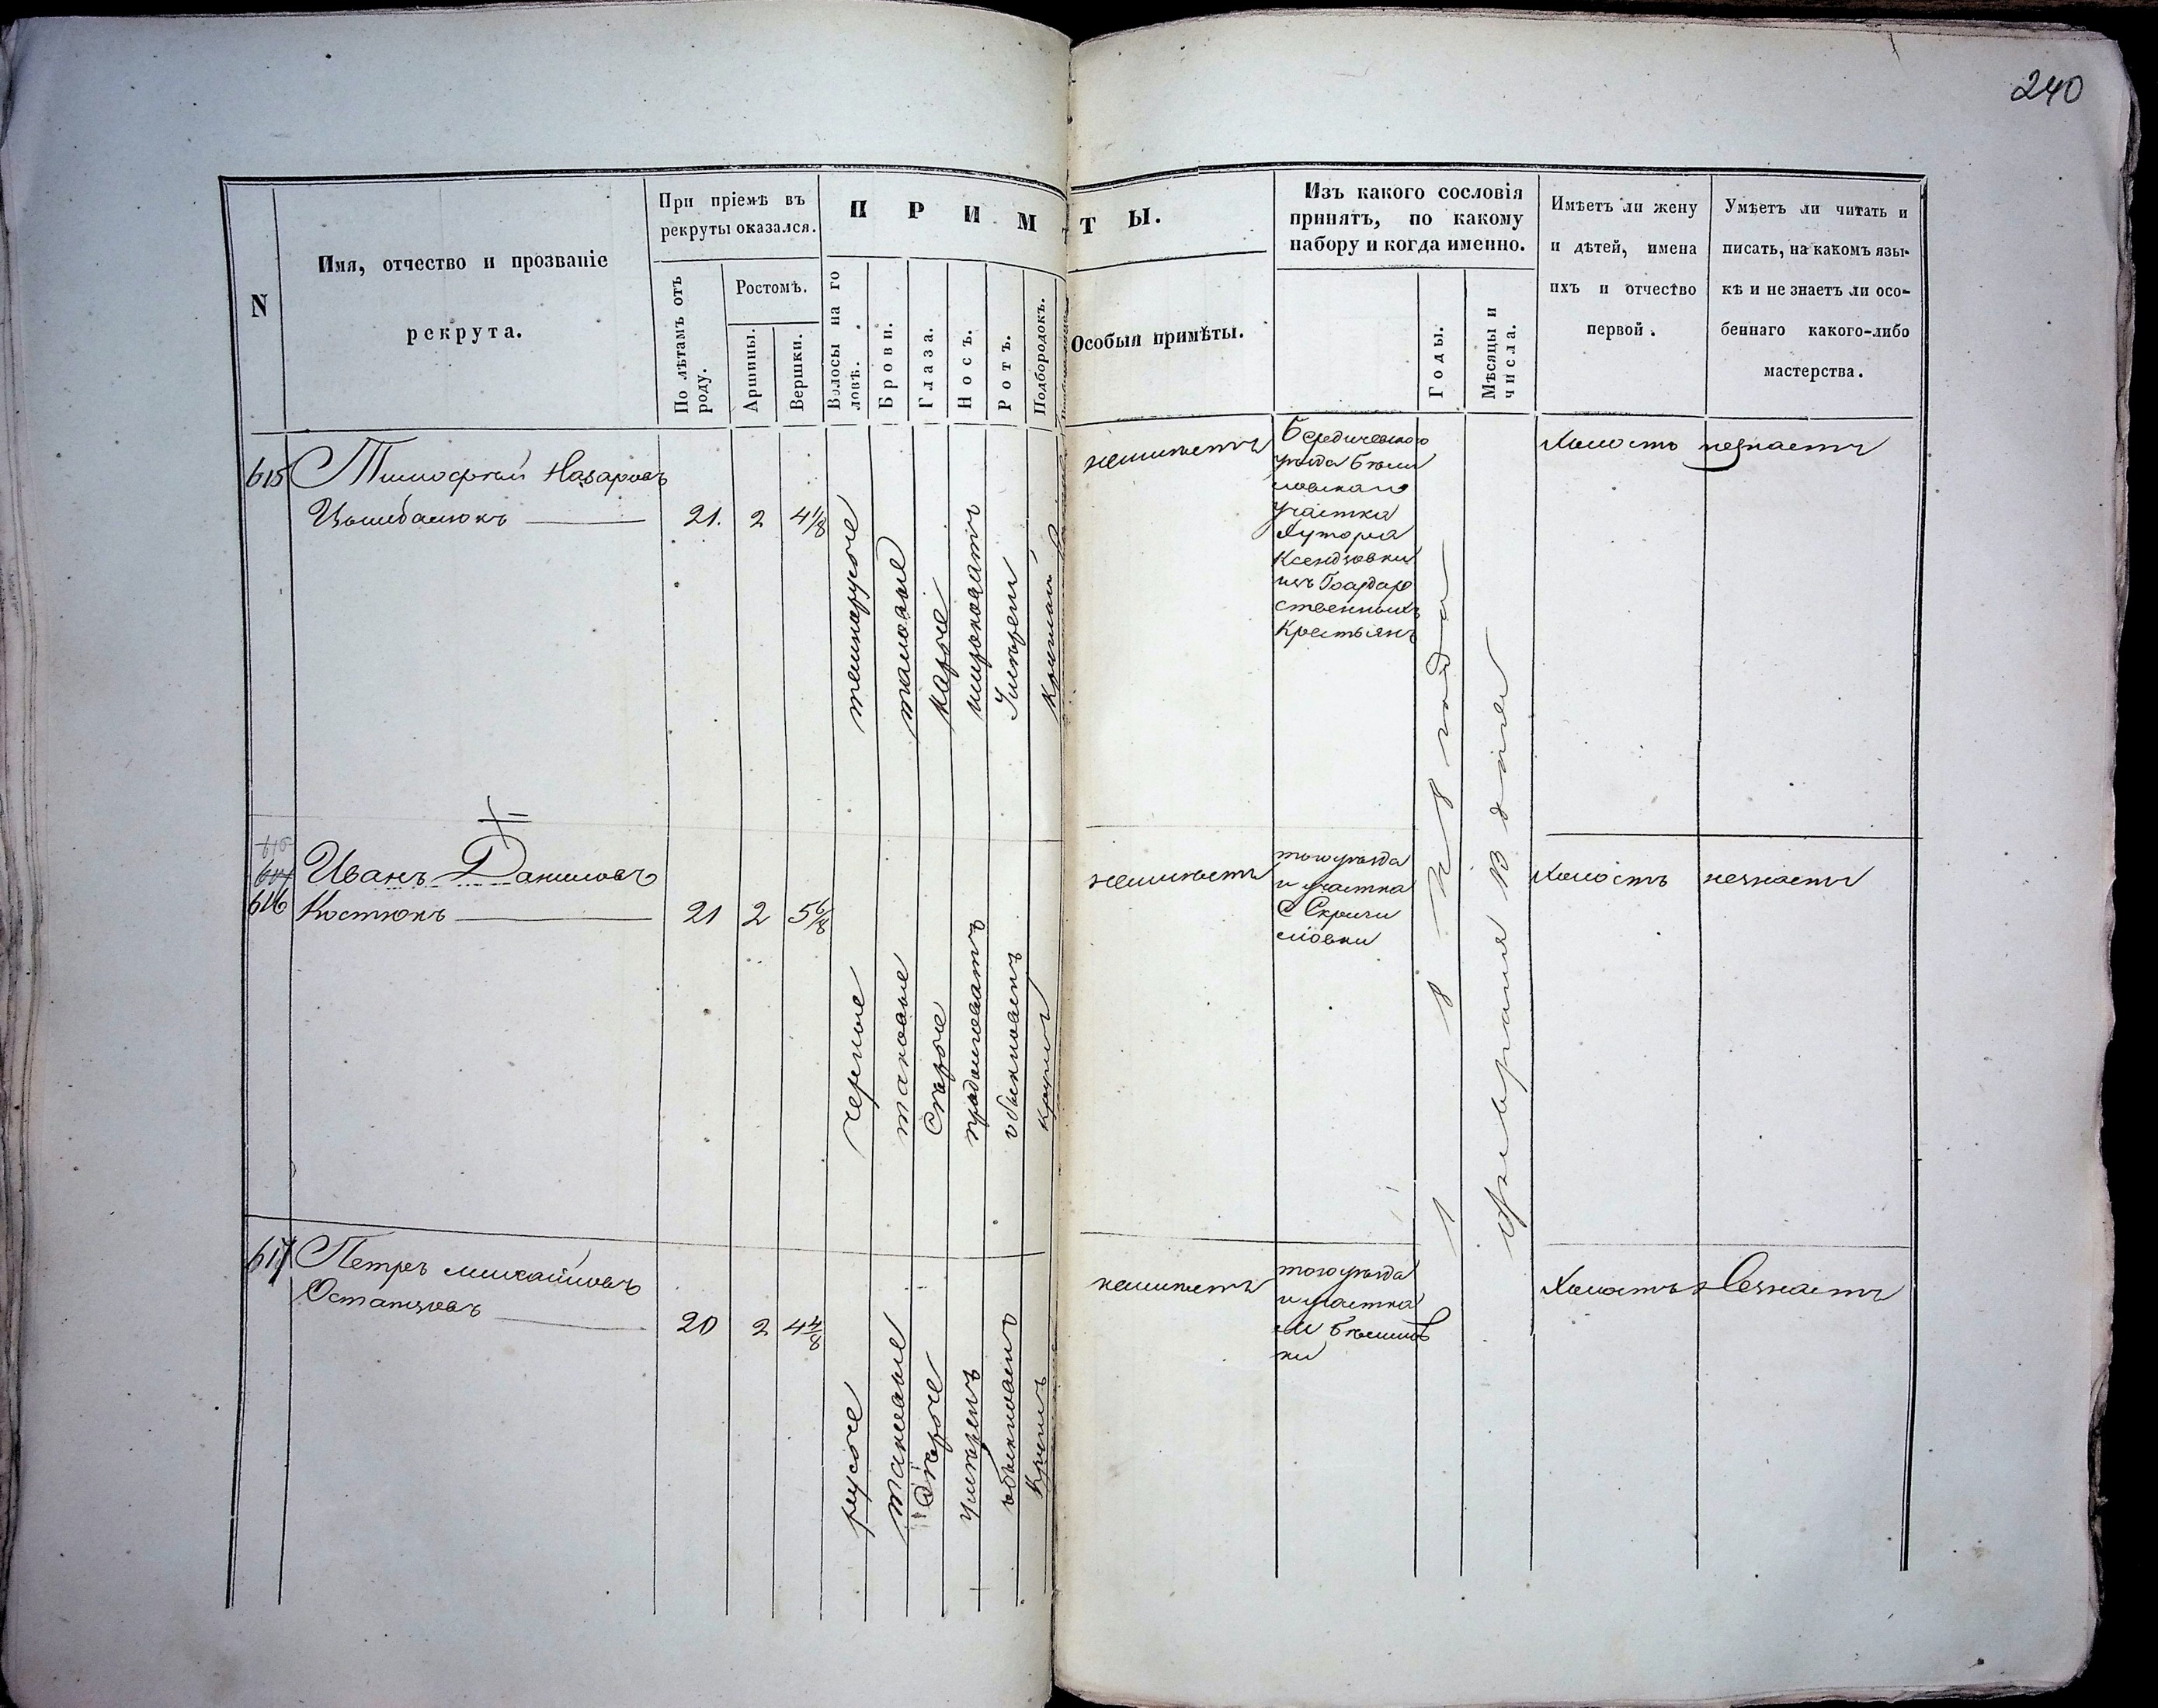 240
N
Имя, отчество и прозваніе
рекрута.
При пріемѣ въ
рекруты оказался.
По лѣтамъ отъ
роду.
Ростомъ.
Аршины.
Вершки.
ПРИМѢТЫ.
Волосы на го
ловѣ.
Брови.
Глаза.
Носъ.
Ротъ.
Подбородокъ.
Особыя примѣты.
Изъ какого сословія
принятъ, по какому
набору и когда именно.
Годы.
Мѣсяцы и
числа.
Имѣетъ ли жену
и дѣтей, имена
ихъ и отчество
первой.
Умѣетъ ли читать и
писать, на какомъ язы-
кѣ и не знаетъ ли осо-
беннаго какого-либо
мастерства.
615
Тимофѣй Назаровъ
Цымбалюкъ
21.
2
4 1/8
темнорусые
таковые
карые
широковатъ
умѣрен
неимѣетъ
Бердичевского
уѣзда Бѣли
ловскаго
участка
Хутора
Ксендзовки
изъ Государ
ственныхъ
Крестьянъ
1868 года
февраля 13 дня
Холостъ
незнаетъ
615
616
Иванъ Даниловъ
Костюкъ
21
2
5 6/8
черные
таковые
Сѣрые
продолговатъ
обыкновенъ
круглъ
неимѣетъ
того уѣзда
и участка
С Скрыги
ловки
Холостъ
незнаетъ
617
Петръ Михайловъ
Остапчовъ
20
2
4 4/8
русые
таковые
Сѣрые
умѣренъ
обыкновенъ
круглъ
неимѣетъ
того уѣзда
и участка
М Бѣлилов
ки
Холостъ
Незнаетъ